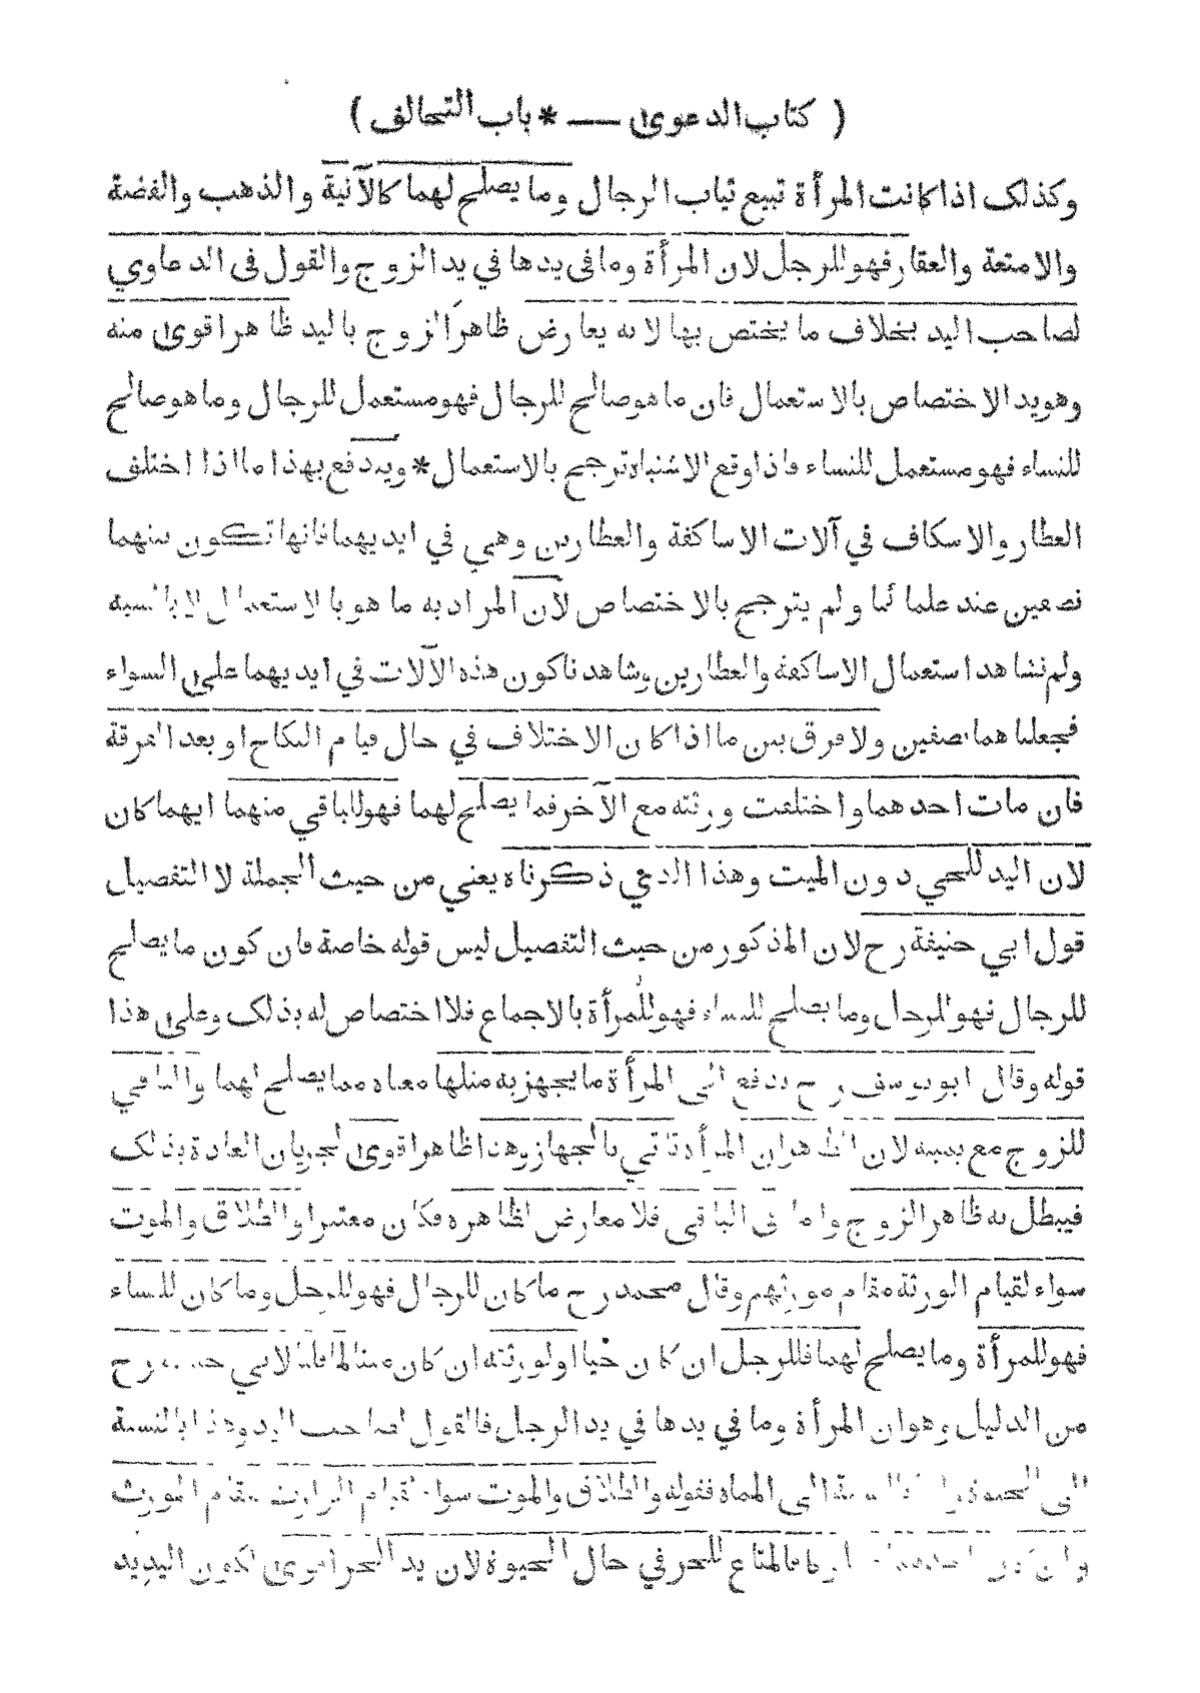 ( كتاب الدعوى — * باب التحالف )
وكذلك اذا كانت المرأة تبيع ثياب الرجال وما يصلح لهما كالآنية والذهب والفضة
والامتعة والعقار فهو للرجل لان المرأة وما في يدها في يد الزوج والقول في الدعاوي
لصاحب اليد بخلاف ما يختص بها لانه يعارض ظاهر الزوج باليد ظاهر اقوى منه
وهو يد الاختصاص بالاستعمال فان ما هو صالح للرجال فهو مستعمل للرجال وما هو صالح
للنساء فهو مستعمل للنساء فاذا وقع الاشتباه ترجح بالاستعمال * ويندفع بهذا ما اذا اختلف
العطار والاسكاف في آلات الاساكفة والعطارين وهي في ايديهما فانها تكون بينهما
نصفين عند علمائنا ولم يترجح بالاختصاص لان المراد به ما هو بالاستعمال لا بالنسبة
ولم نشاهد استعمال الاساكفة والعطارين وشاهدنا كون هذه الآلات في ايديهما على السواء
فجعلناهما نصفين ولا فرق بين ما اذا كان الاختلاف في حال قيام النكاح او بعد الفرقة
فان مات احدهما واختلفت ورثته مع الآخر فما يصلح لهما فهو للباقي منهما ايهما كان
لان اليد للحي دون الميت وهذا الذي ذكرناه يعني من حيث الجملة لا التفصيل
قول ابي حنيفة رح لان المذكور من حيث التفصيل ليس قوله خاصة فان كون ما يصلح
للرجال فهو للرجل وما يصلح للنساء فهو للمرأة بالاجماع فلا اختصاص له بذلك وعلى هذا
قوله وقال ابو يوسف رح يدفع الى المرأة ما يجهز به مثلها معناه مما يصلح لهما والباقي
للزوج مع يمينه لان الظاهر ان المرأة تاتي بالجهاز وهذا ظاهر اقوى لجريان العادة بذلك
فيبطل به ظاهر الزوج واما في الباقي فلا معارض لظاهره فكان معتبرا والطلاق والموت
سواء لقيام الورثة مقام مورثهم وقال محمد رح ما كان للرجال فهو للرجل وما كان للنساء
فهو للمرأة وما يصلح لهما فللرجل ان كان حيا او لورثته ان كان ميتا لما قلنا لابي حنيفة رح
من الدليل وهو ان المرأة وما في يدها في يد الرجل فالقول لصاحب اليد وهذا بالنسبة
الى الحيوة الى المماة فقوله والطلاق والموت سواء لقيام الوارث مقام المورث
وان كان احدهما فالمتاع للحر في حال الحيوة لان يد الحر اقوى لكون اليد يد